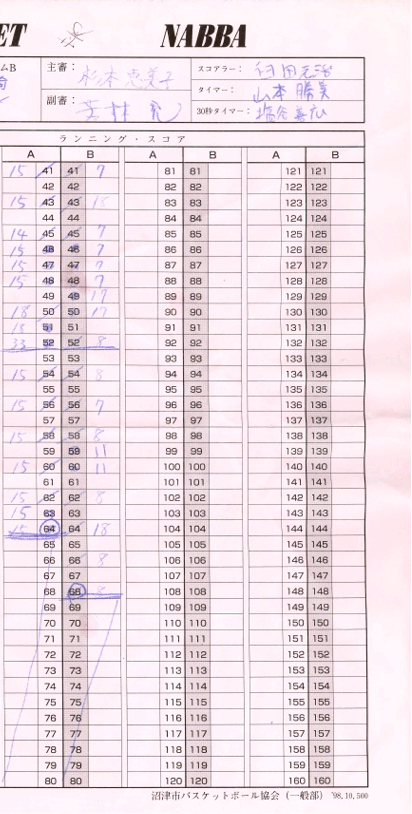 ET NABBA
ムB 主審: 杉本恵美子 スコアラー: 臼田元治
タイマー: 山本勝美
副審: 若林 30秒タイマー: 塩谷兼広
ランニング・スコア
A B A B A B
15 41 41 7 81 81 121 121
42 42 82 82 122 122
15 43 43 18 83 83 123 123
44 44 84 84 124 124
14 45 45 7 85 85 125 125
15 46 46 7 86 86 126 126
15 47 47 7 87 87 127 127
15 48 48 7 88 88 128 128
49 49 17 89 89 129 129
18 50 50 17 90 90 130 130
18 51 51 91 91 131 131
33 52 52 8 92 92 132 132
53 53 93 93 133 133
15 54 54 8 94 94 134 134
55 55 95 95 135 135
15 56 56 7 96 96 136 136
57 57 97 97 137 137
15 58 58 8 98 98 138 138
59 59 11 99 99 139 139
15 60 60 11 100 100 140 140
61 61 101 101 141 141
15 62 62 8 102 102 142 142
15 63 63 103 103 143 143
15 64 64 18 104 104 144 144
65 65 105 105 145 145
66 66 8 106 106 146 146
67 67 107 107 147 147
68 68 8 108 108 148 148
69 69 109 109 149 149
70 70 110 110 150 150
71 71 111 111 151 151
72 72 112 112 152 152
73 73 113 113 153 153
74 74 114 114 154 154
75 75 115 115 155 155
76 76 116 116 156 156
77 77 117 117 157 157
78 78 118 118 158 158
79 79 119 119 159 159
80 80 120 120 160 160
沼津市バスケットボール協会(一般部) '98,10,500